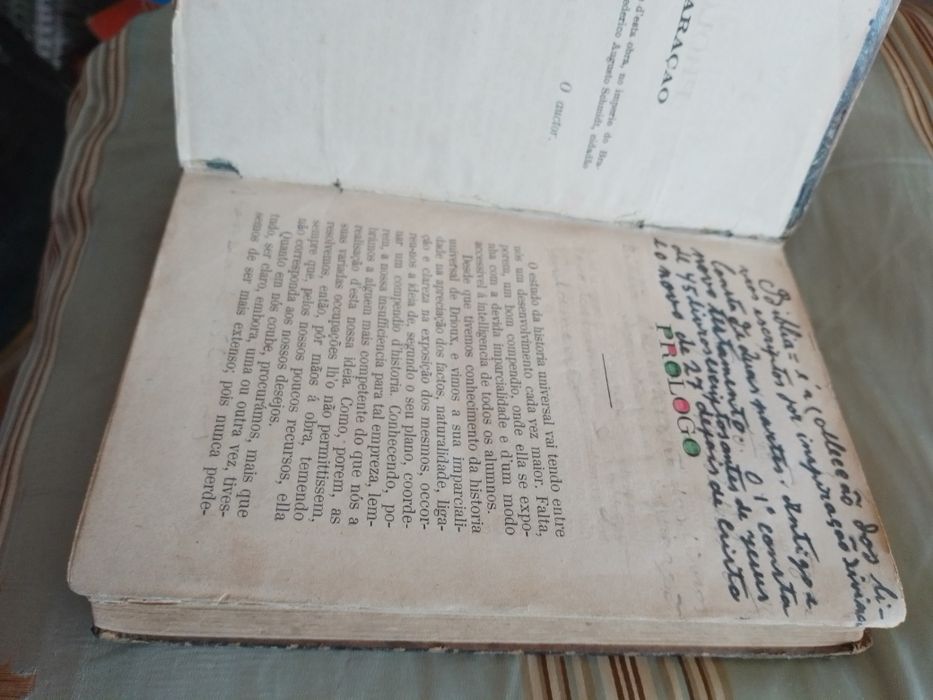 ARAÇÃO
d'esta obra, no imperio do Bra-
ederico Augusto Schmidt, cidadão
O auctor.
Biblia = s'n (collecção dos li-
vros escriptos por inspiração divina,
Consta de duas partes. Antigo e
novo testamento. O 1º consta
de 45 livros escriptos antes de Jesus
e o novo de 27 depois de Christo
PROLOGO
O estudo da historia universal vai tendo entre
nós um desenvolvimento cada vez maior. Falta,
porem, um bom compendio, onde ella se expo-
nha com a devida imparcialidade e d'um modo
accessivel á intelligencia de todos os alumnos.
Desde que tivemos conhecimento da historia
universal de Drioux, e vimos a sua imparciali-
dade na apreciação dos factos, naturalidade, liga-
ção e clareza na exposição dos mesmos, occor-
reu-nos a ideia de, segundo o seu plano, coorde-
nar um compendio d'historia. Conhecendo, po-
rem, a nossa insufficiencia para tal empreza, lem-
brámos a alguem mais competente do que nós a
realisação d'esta nossa ideia. Como, porem, as
suas variadas occupações lh'o não permittissem,
resolvemos, então, pôr mãos á obra, temendo
sempre que, pelos nossos poucos recursos, ella
não corresponda aos nossos desejos.
Quanto em nós coube, procurámos, mais que
tudo, ser claro, embora, uma ou outra vez, tives-
semos de ser mais extenso; pois nunca perde-